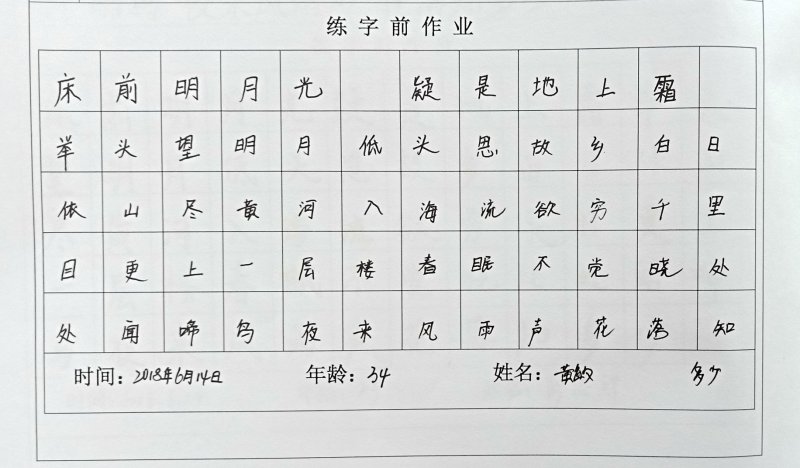 练字前作业
床前明月光 疑是地上霜
举头望明月低头思故乡白日
依山尽黄河入海流欲穷千里
目更上一层楼春眠不觉晓处
处闻啼鸟夜来风雨声花落知
时间：2018年6月14日 年龄：34 姓名：黄 多少